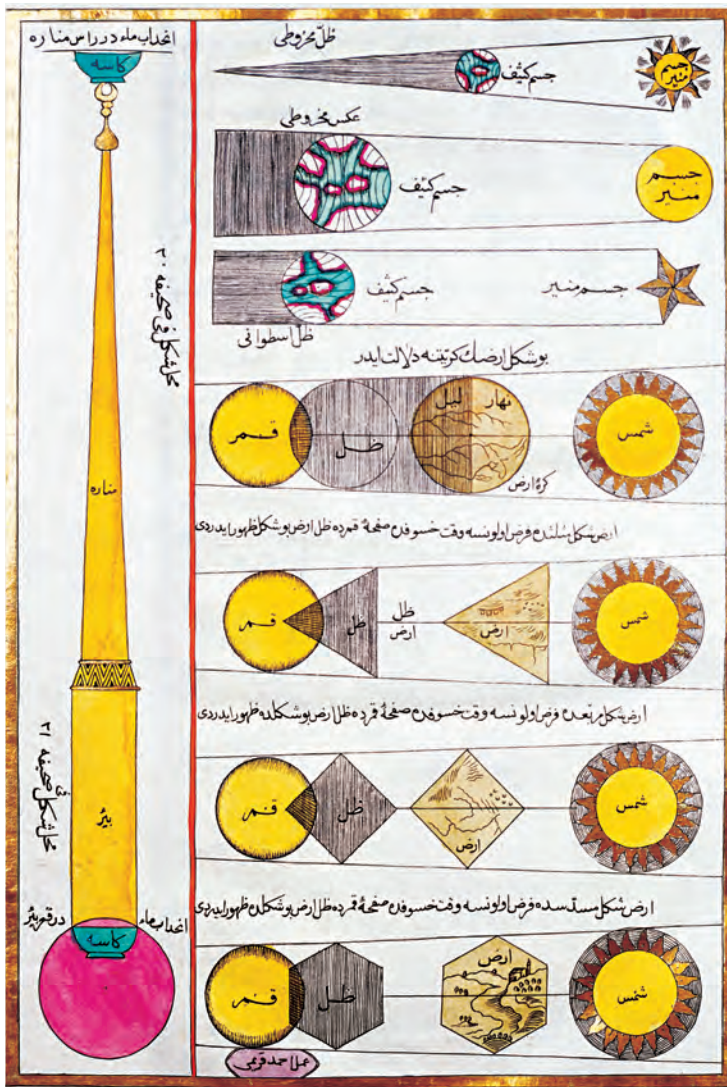 انحداب ماء در راس مناره
كاسه
محل شكل فی صحیفه ٣٠
مناره
محل شكل فی صحیفه ٣١
بئر
انحداب ماء
در قعر بئر
كاسه
ظلّ مخروطی
جسم كثیف
جسم منیر
عكس مخروطی
جسم كثیف
جسم منیر
جسم كثیف
جسم منیر
ظل اسطوانی
بو شكل ارضك كریتنه دلالت ایدر
قمر
ظل
لیل
نهار
كرهٔ ارض
شمس
ارض شكل مثلثده فرض اولونسه وقت خسوفده صفحهٔ قمرده ظل ارض بو شكل ظهور ایدردی
قمر
ظل
ظل
ارض
ارض
شمس
ارض شكل مربعده فرض اولونسه وقت خسوفده صفحهٔ قمرده ظل ارض بو شكلده ظهور ایدردی
قمر
ظل
ارض
شمس
ارض شكل مسدسده فرض اولونسه وقت خسوفده صفحهٔ قمرده ظل ارض بو شكلده ظهور ایدردی
قمر
ظل
ارض
شمس
عمل احمد قریمی